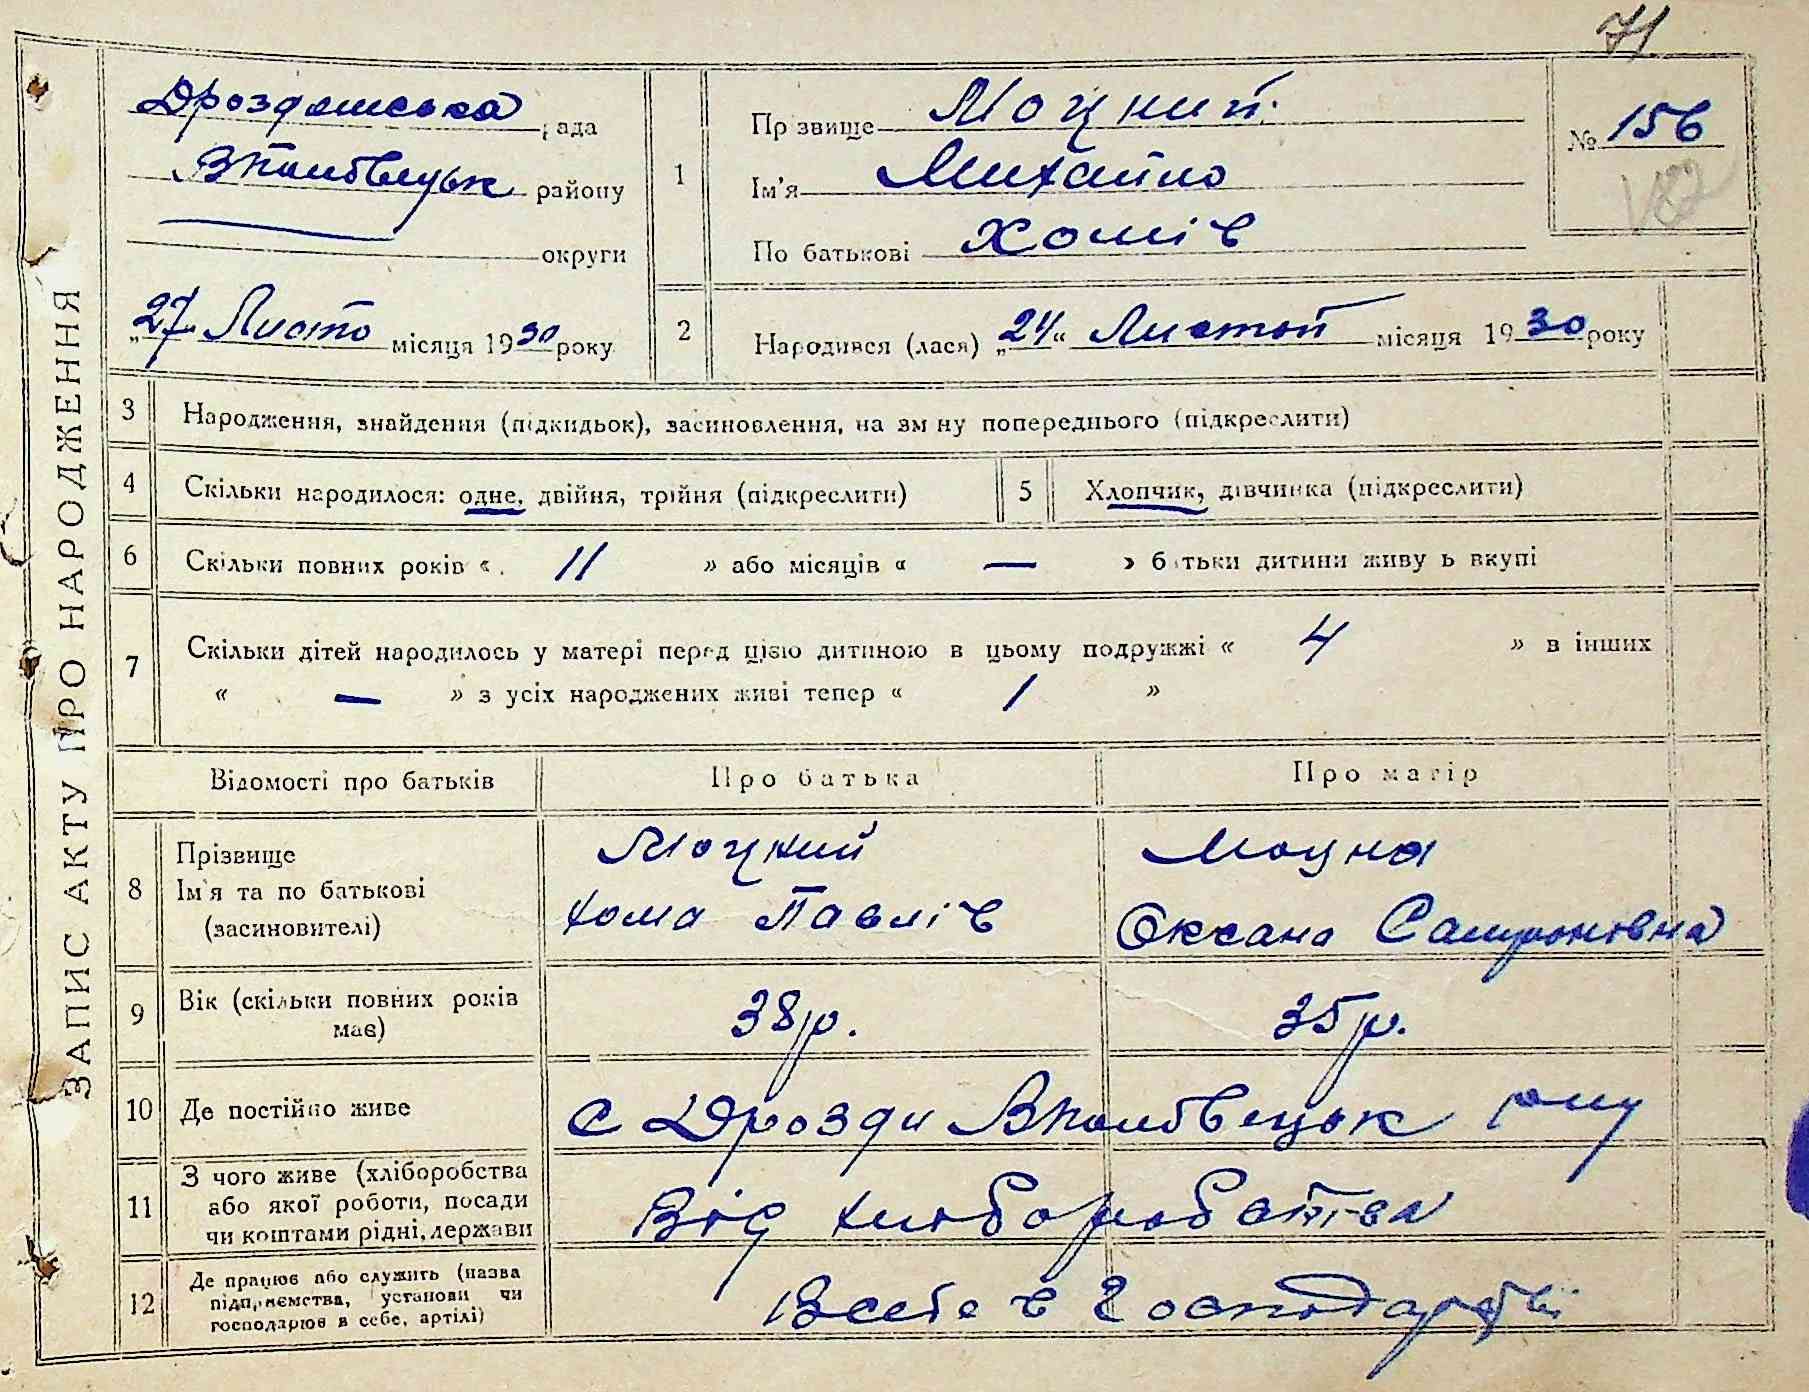 71
ЗАПИС АКТУ ПРО НАРОДЖЕННЯ
Дроздянська рада
району
округи
27 Листо місяця 1930 року
1
Прізвище Моцний
Ім'я Михайло
По батькові Хомів
№ 156
182
2
Народився (лася) „24“ Листоп місяця 1930 року
3 Народження, знайдення (підкидьок), засиновлення, на зміну попереднього (підкреслити)
4 Скільки народилося: одне, двійня, трійня (підкреслити)
5 Хлопчик, дівчинка (підкреслити)
6 Скільки повних років « 11 » або місяців « — » батьки дитини живуть вкупі
7 Скільки дітей народилось у матері перед цією дитиною в цьому подружжі « 4 » в інших
« — » з усіх народжених живі тепер « 1 »
Відомості про батьків Про батька Про матір
8 Прізвище Моцний Моцна
Ім'я та по батькові Хома Павлів Оксана
(засиновителі)
9 Вік (скільки повних років 38 р. 35 р.
має)
10 Де постійно живе с Дрозди рну
11 З чого живе (хліборобства
або якої роботи, посади Від хліборобства
чи коштами рідні, держави
12 Де працює або служить (назва
підприємства, установи чи В себе в Господарстві
господарює в себе, артілі)